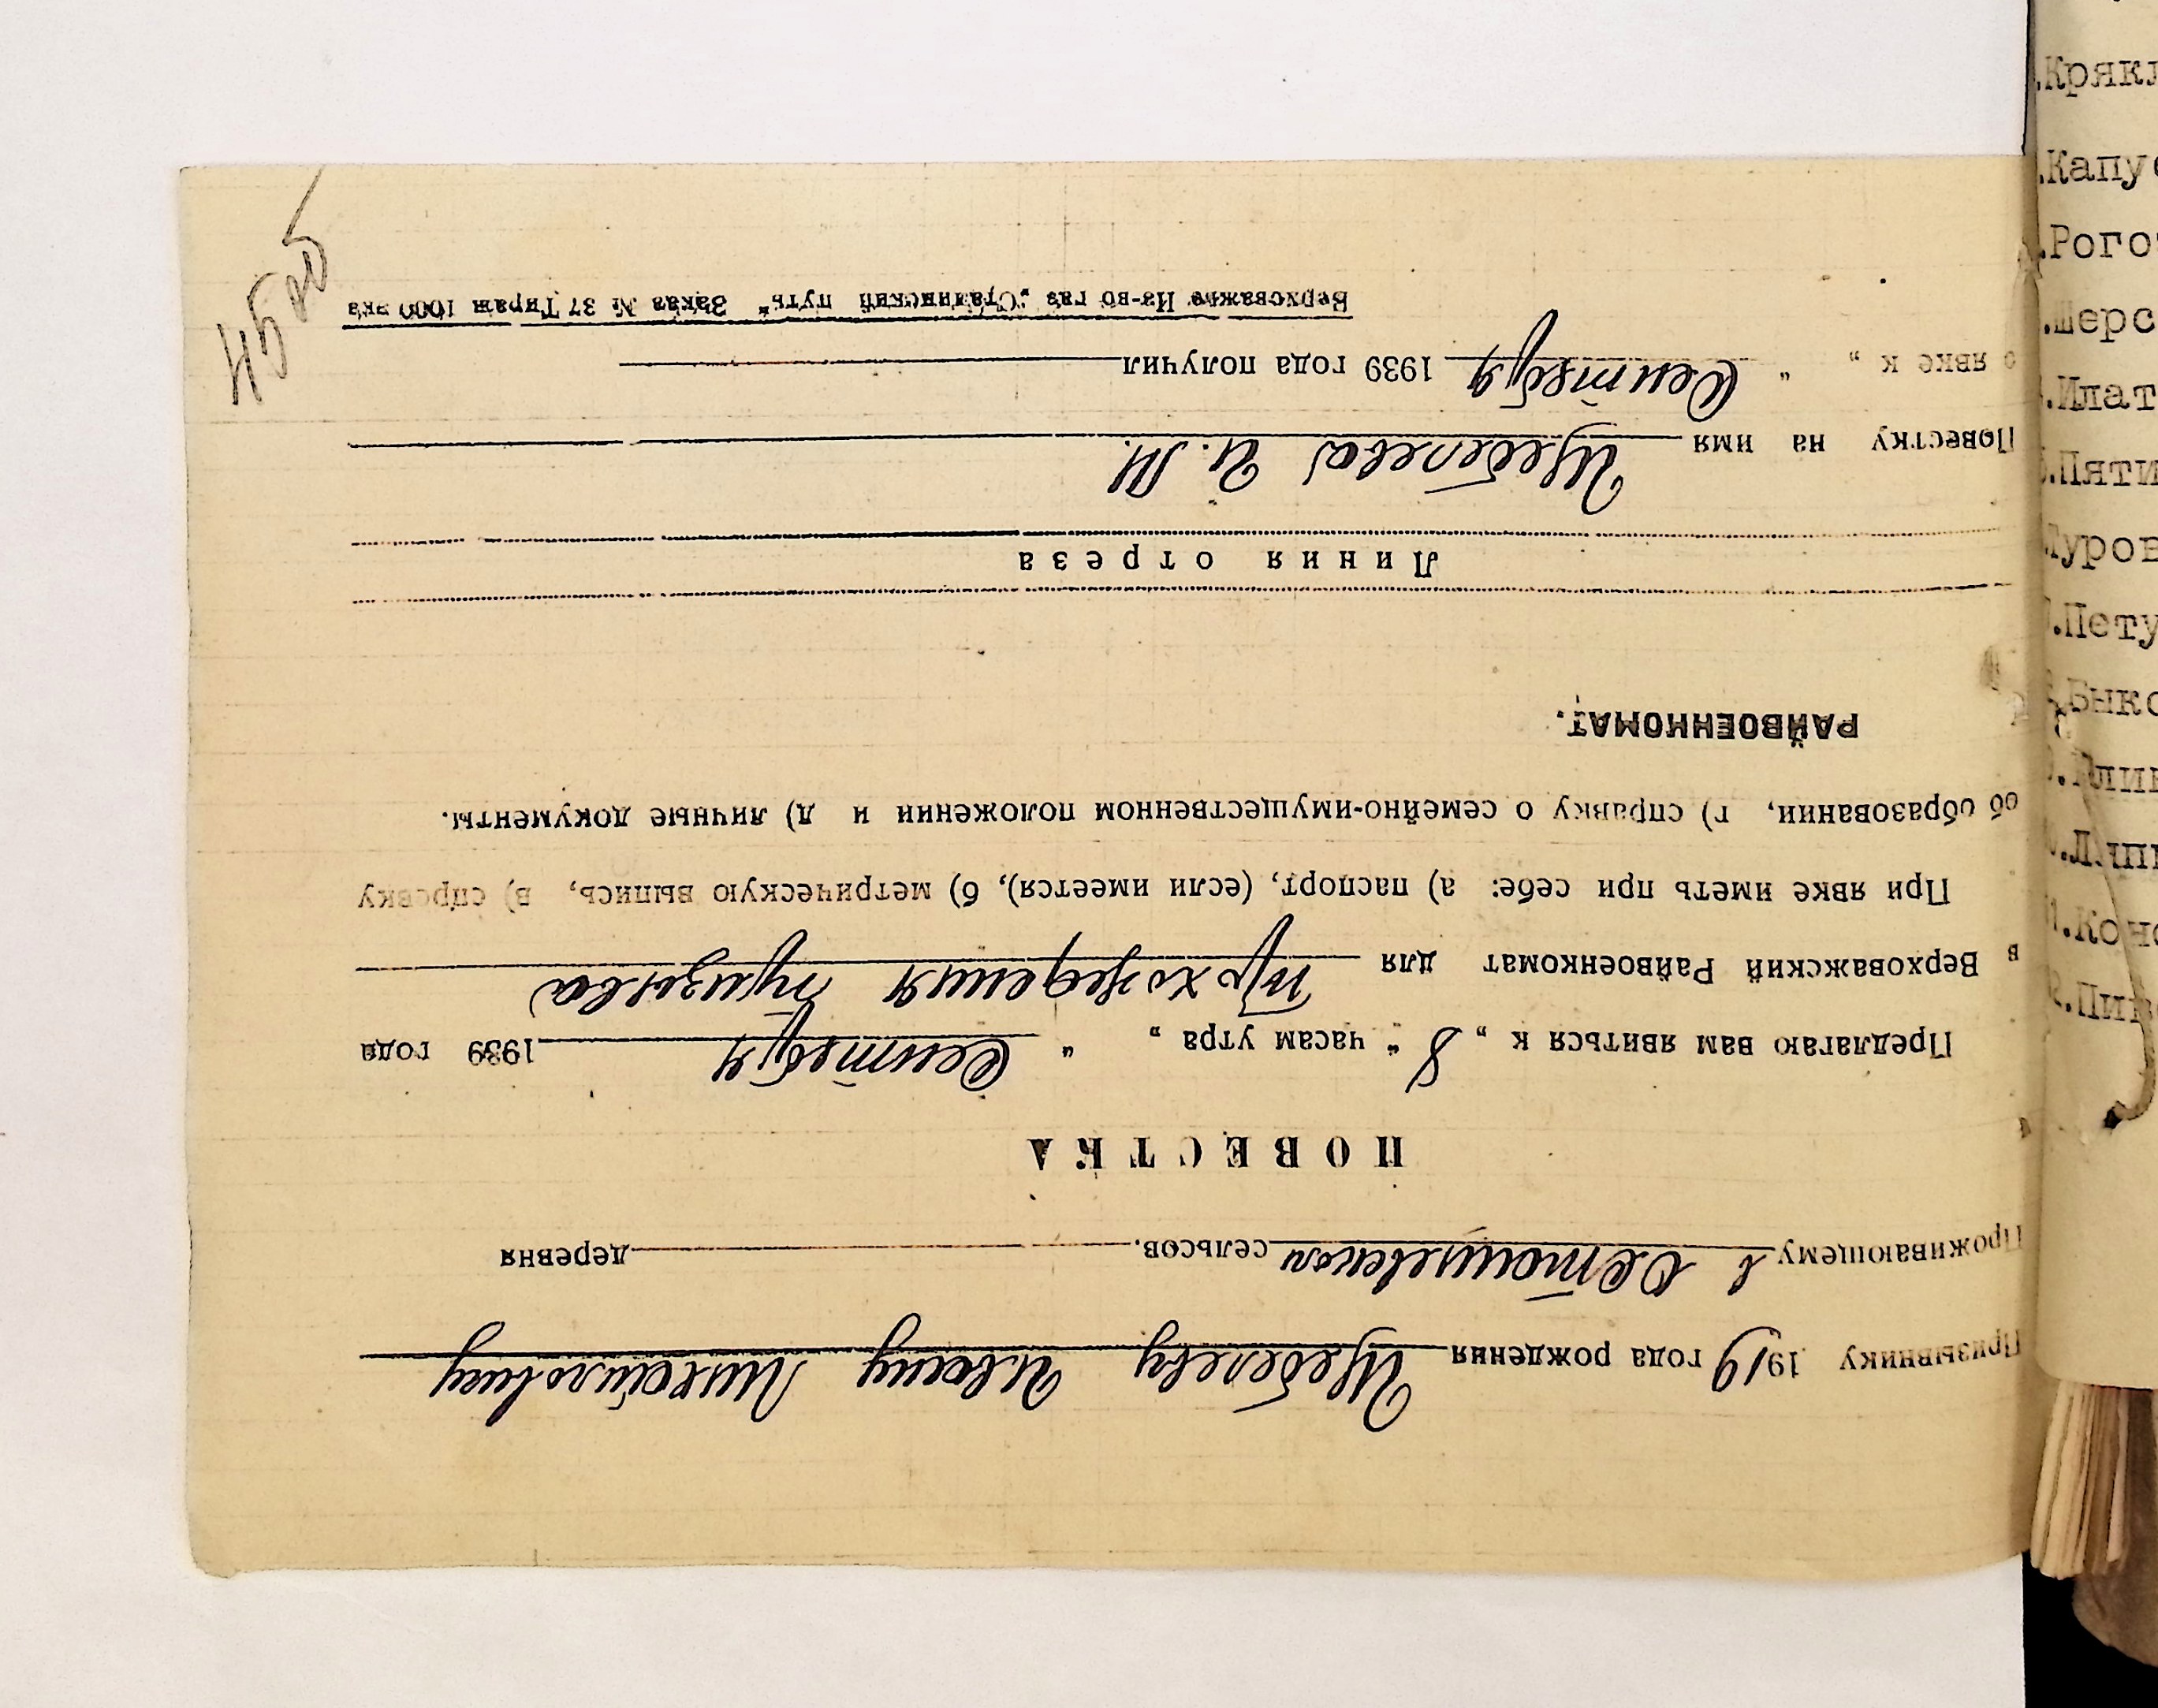 Призывнику 1919 года рождения Щебелеву Ивану Михайловичу
Проживающему в сельсов. деревня
ПОВЕСТКА
Предлагаю вам явиться к „ 8 “ часам утра „ “ Сентября 1939 года
в Верховажский Райвоенкомат для прохождения призыва
При явке иметь при себе: а) паспорт, (если имеется), б) метрическую выпись, в) справку
об образовании, г) справку о семейно-имущественном положении и д) личные документы.
РАЙВОЕНКОМАТ.
Линия отреза
Повестку на имя Щебелева И. М.
о явке к „ “ Сентября 1939 года получил
Верховажье Из-во газ „Сталинский путь“ Заказ № 37 Тираж 1000 экз
.Крякл
.Капус
.Рогот
.Шерс
.Илат
.Пяти
Туров
.Пету